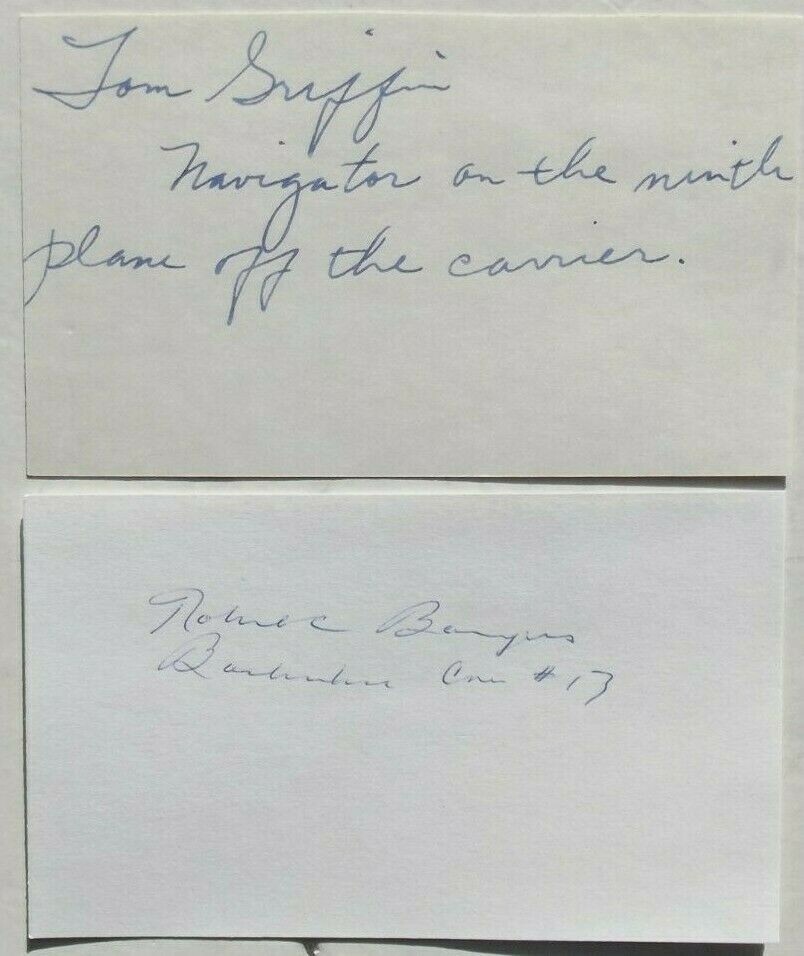 Tom Griffin
Navigator on the ninth
plane off the carrier.
Robert C Bourgeois
Bombardier Crew #13